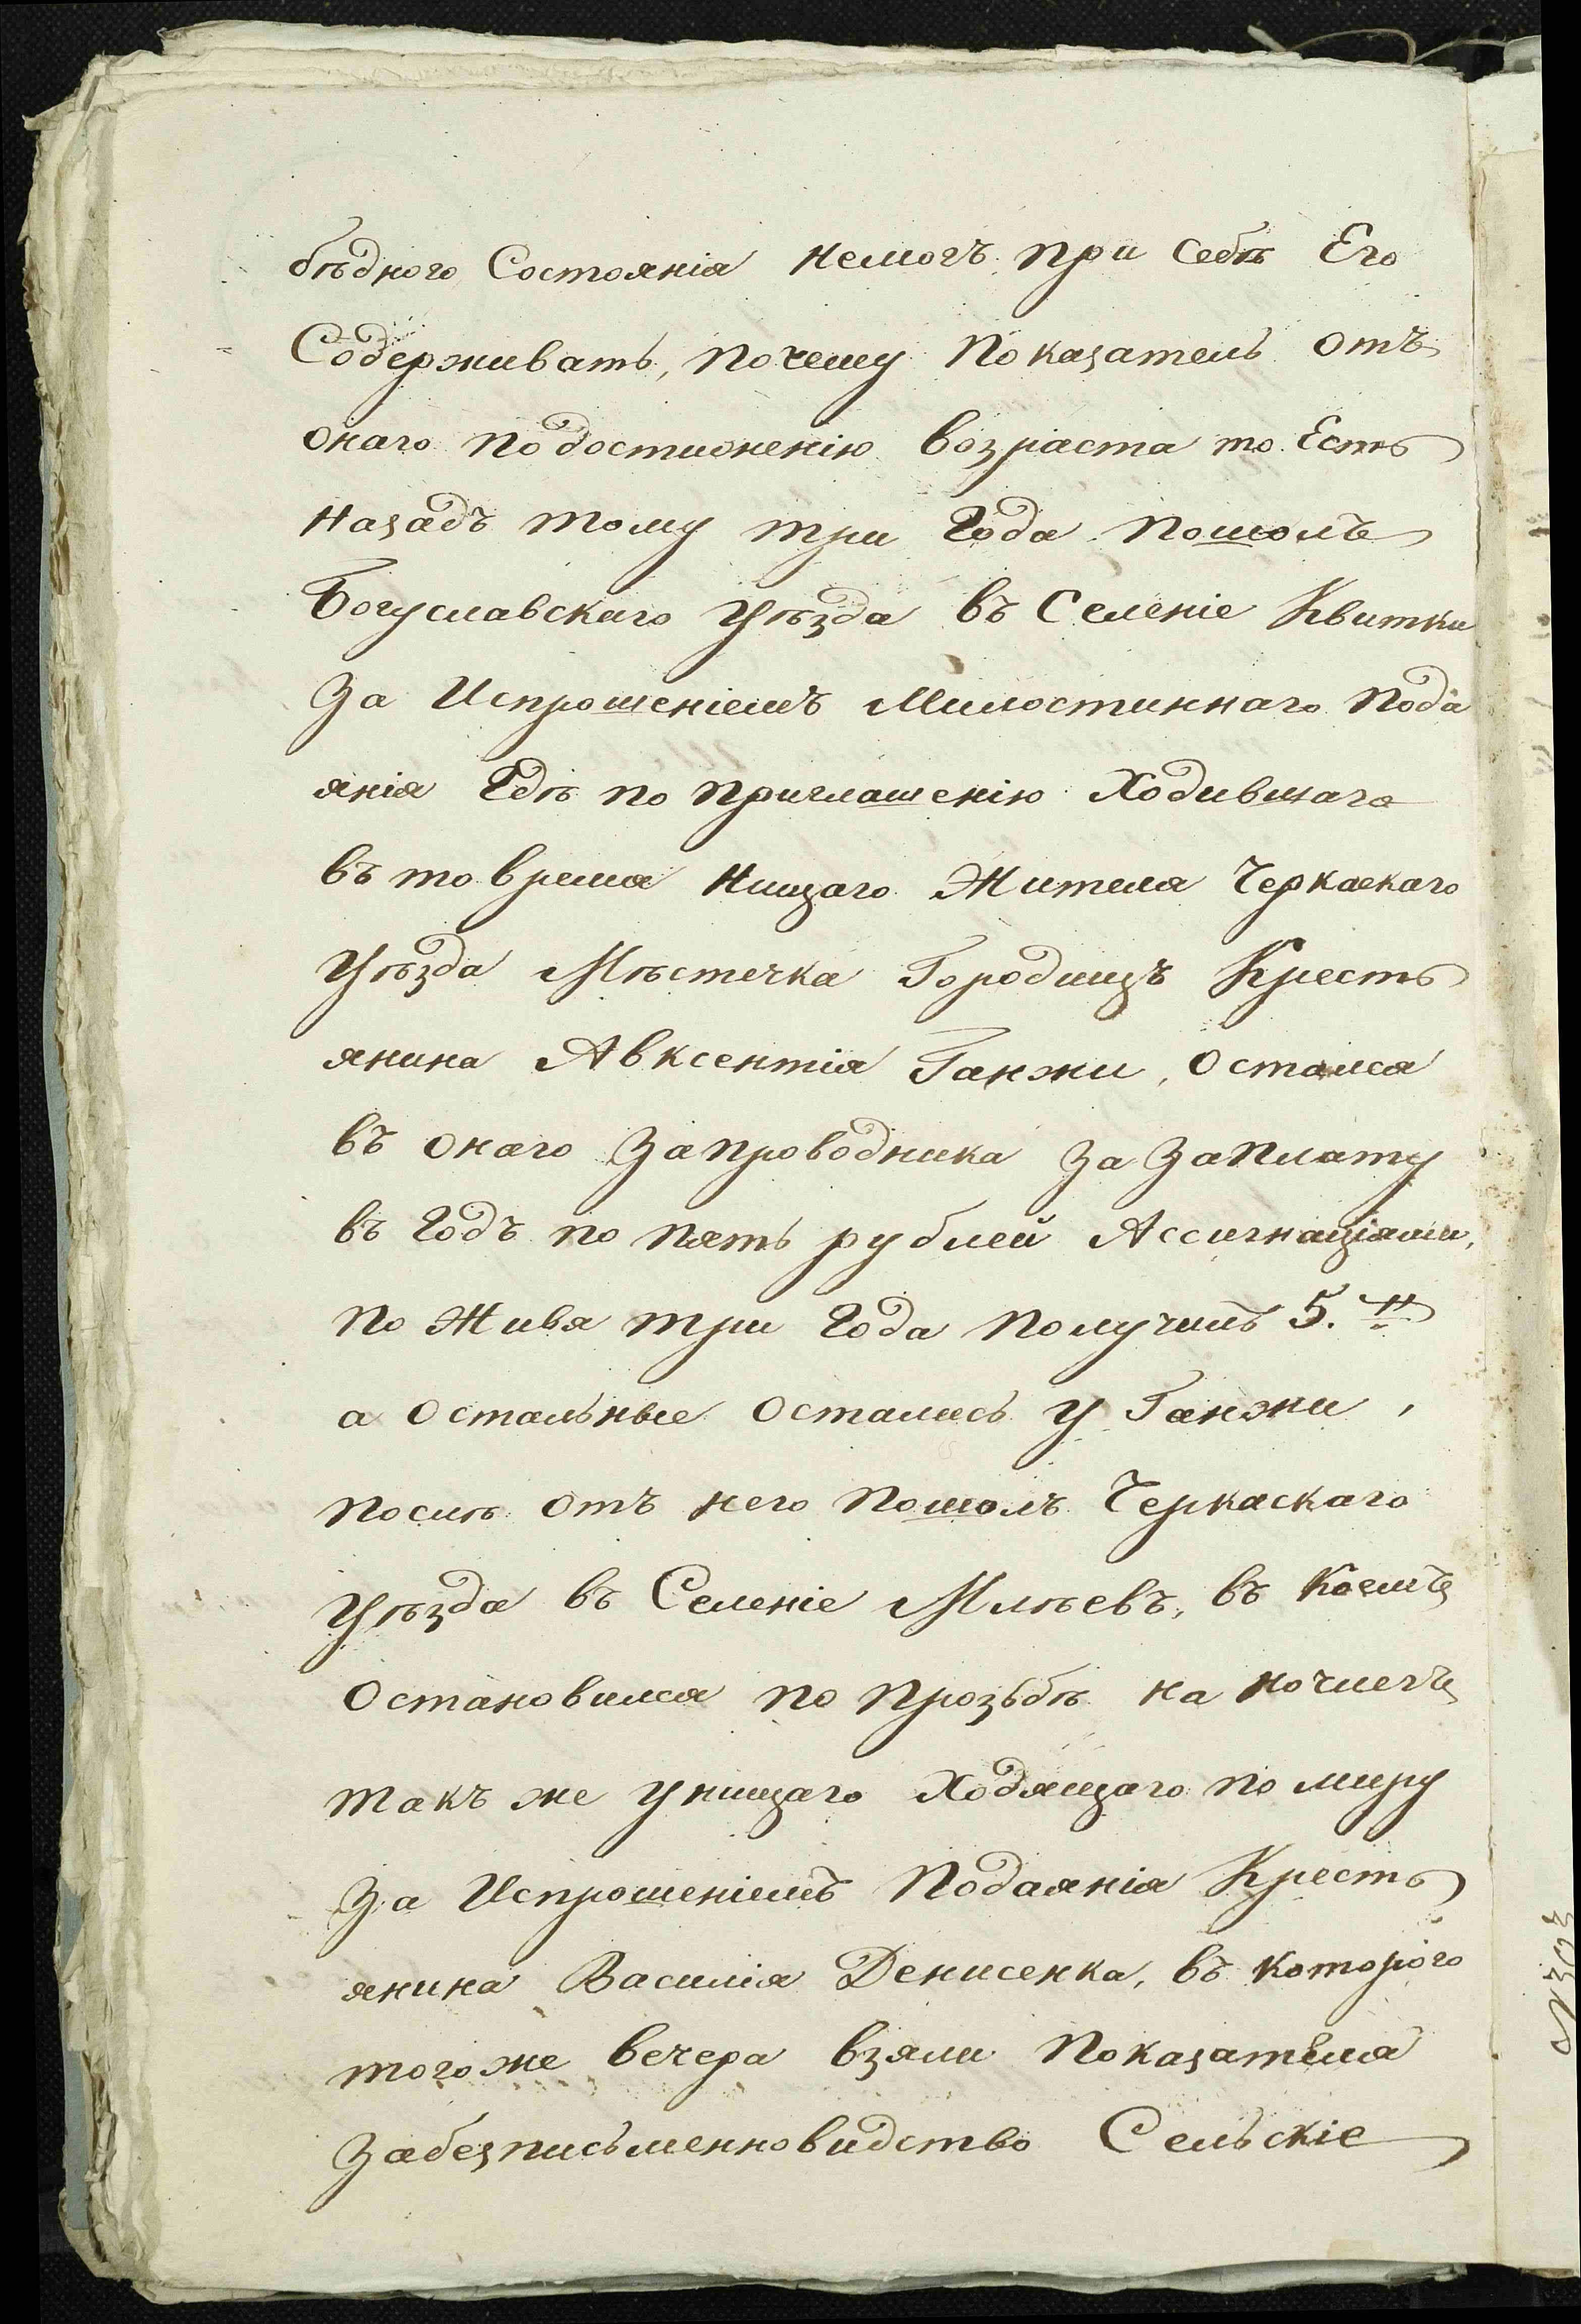 бѣднаго Состоянія немогъ при Себѣ Его
Содерживать, почему показатель отъ
онаго подостиженію возраста то Есть
назадъ тому три Года пошолъ
Богуславскаго Уѣзда въ Селеніе Квитки
За Испрошеніемъ Милостиннаго пода
янія Гдѣ по приглашенію Ходившаго
въ то время нищаго Жителя Черкаскаго
Уѣзда Мѣстечка Городищъ Кресть
янина Авксентія Ганжи, Остался
въ онаго Запроводника За Заплату
въ Годъ по пять рублей Ассигнаціями,
по Живя три Года получилъ 5.
а Остальные Остались у Ганжи,
послѣ отъ него пошолъ Черкаскаго
Уѣзда въ Селеніе Млѣевъ, въ коемъ
Остановился по прозьбѣ на ночлегъ
такъ же у нищаго Ходящаго по миру
За Испрошеніемъ Подаянія Кресть
янина Василія Денисенка, въ которого
тогоже вечера взяли показателя
Забезписьменновидство Сельскіе